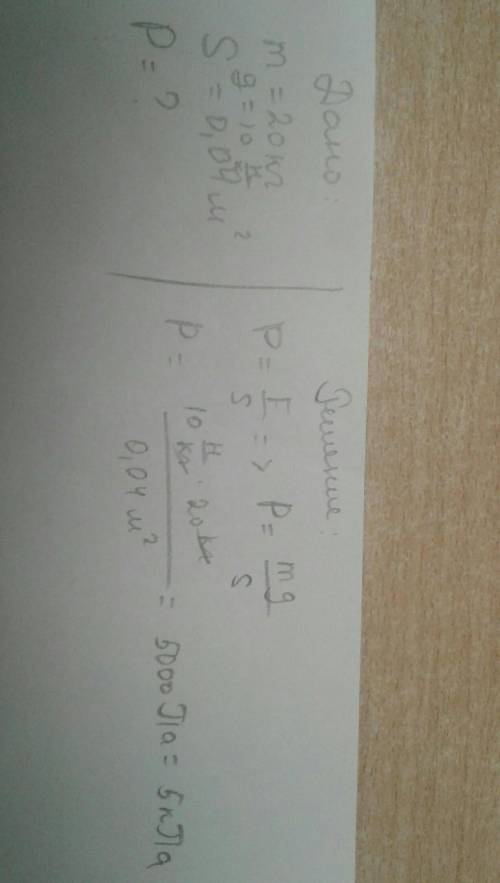 Дано:
m = 20 кг
g = 10 Н/кг
S = 0,04 м²
P = ?
Решение:
P = F/S => P = mg/S
P = 10 Н/кг · 20 кг / 0,04 м² = 5000 Па = 5 кПа